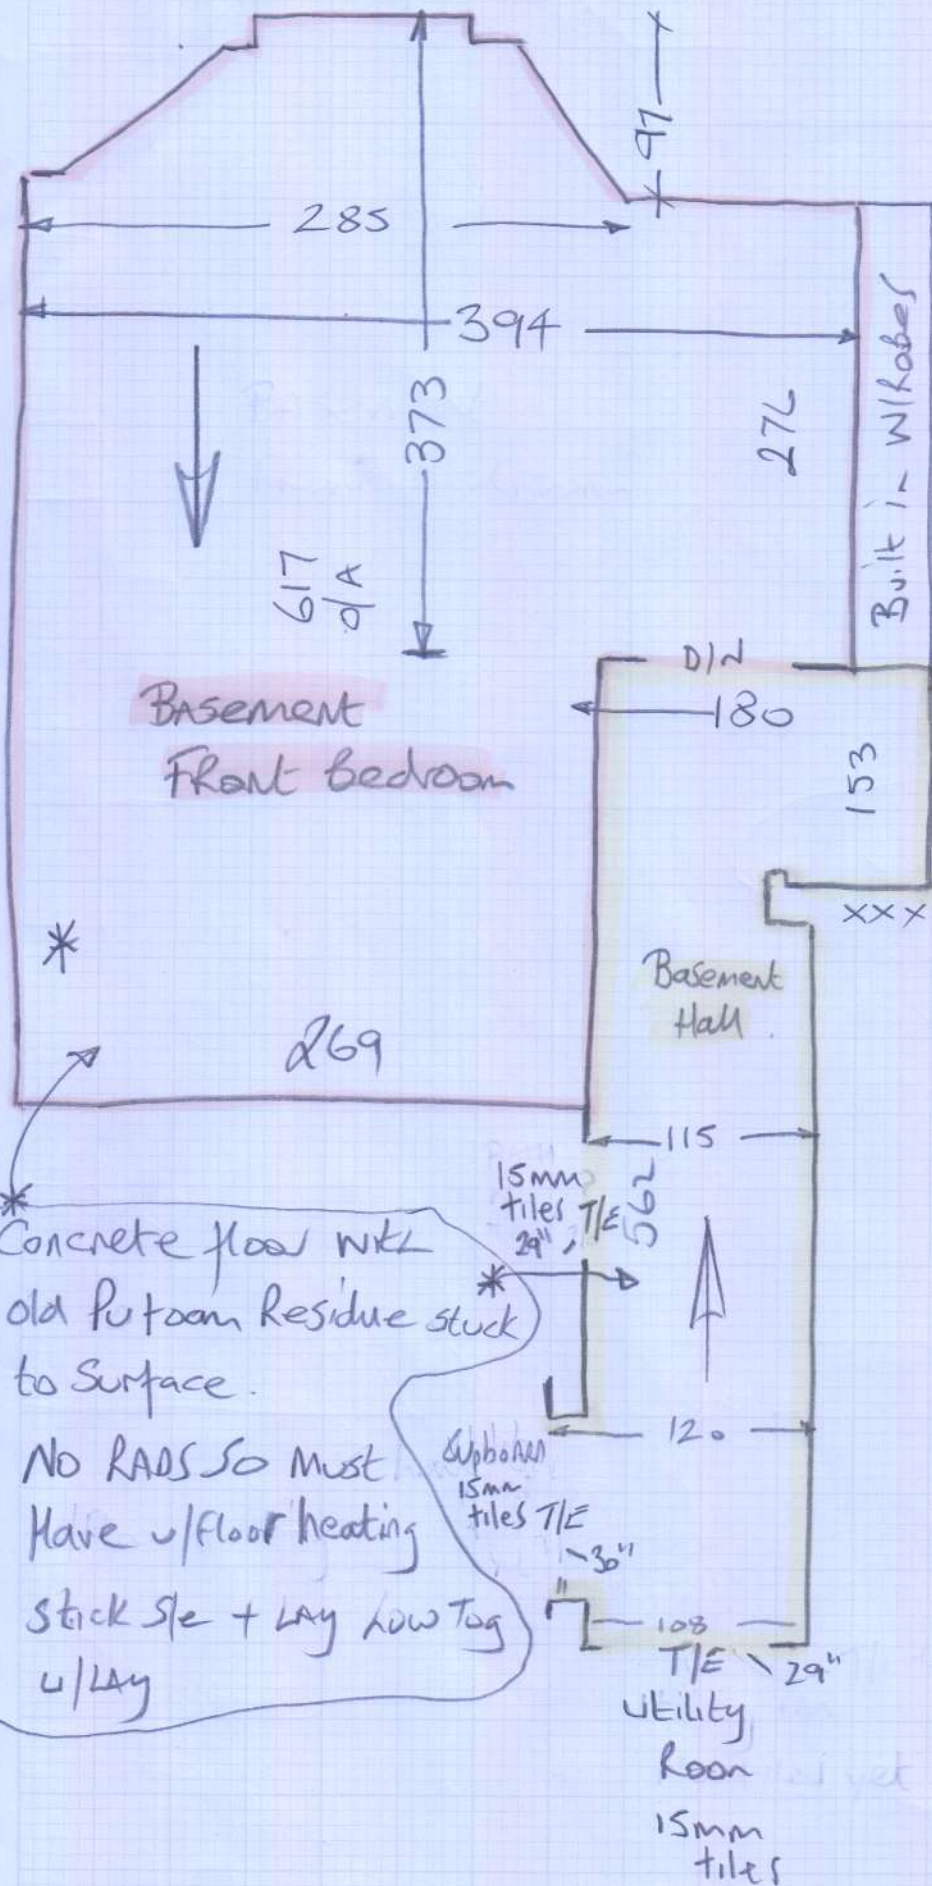 97
285
394
373
276
Built in W/Robes
617
o/A
D/N
180
Basement
Front Bedroom
153
xxx
*
Basement
Hall
269
115
15mm
tiles T/E
29"
562
*
*
Concrete floor with
old Pu foam Residue stuck
to Surface.
NO RADS SO Must
Have u/floor heating
Stick S/e + LAY LOW Tog
u/LAY
120
Cupboard
15mm
tiles T/E
30"
108
T/E 29"
Utility
Room
15mm
tiles